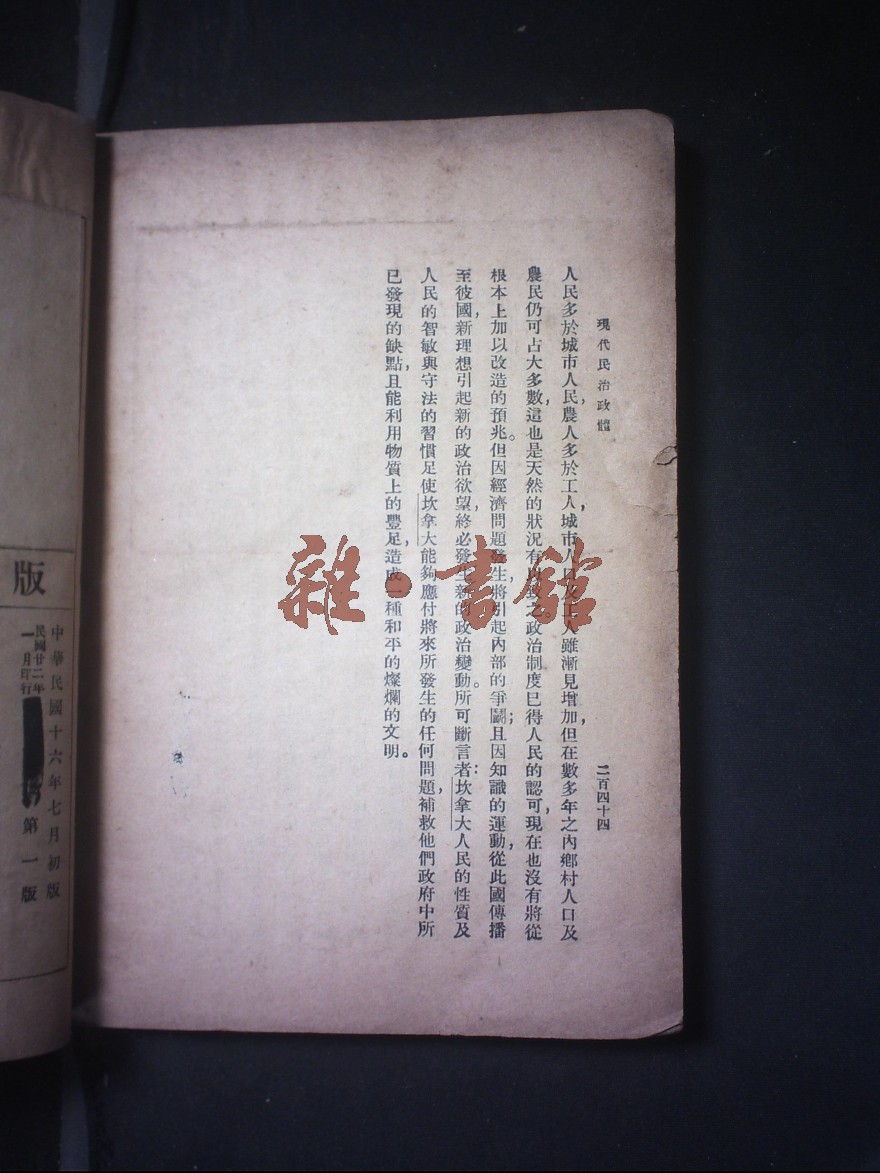 現代民治政體
二百四十四
人民多於城市人民，農人多於工人，城市人口及工人雖漸見增加，但在數多年之內鄉村人口及
農民仍可占大多數，這也是天然的狀況有以致之政治制度已得人民的認可，現在也沒有將從
根本上加以改造的預兆。但因經濟問題發生，將引起內部的爭鬭；且因知識的運動，從此國傳播
至彼國，新理想引起新的政治欲望，終必發生新的政治變動。所可斷言者：坎拿大人民的性質及
人民的智敏與守法的習慣足使坎拿大能夠應付將來所發生的任何問題，補救他們政府中所
已發現的缺點，且能利用物質上的豐足，造成一種和平的燦爛的文明。
雜·書館
版
中華民國十六年七月初版
民國廿二年
一月印行
第一版